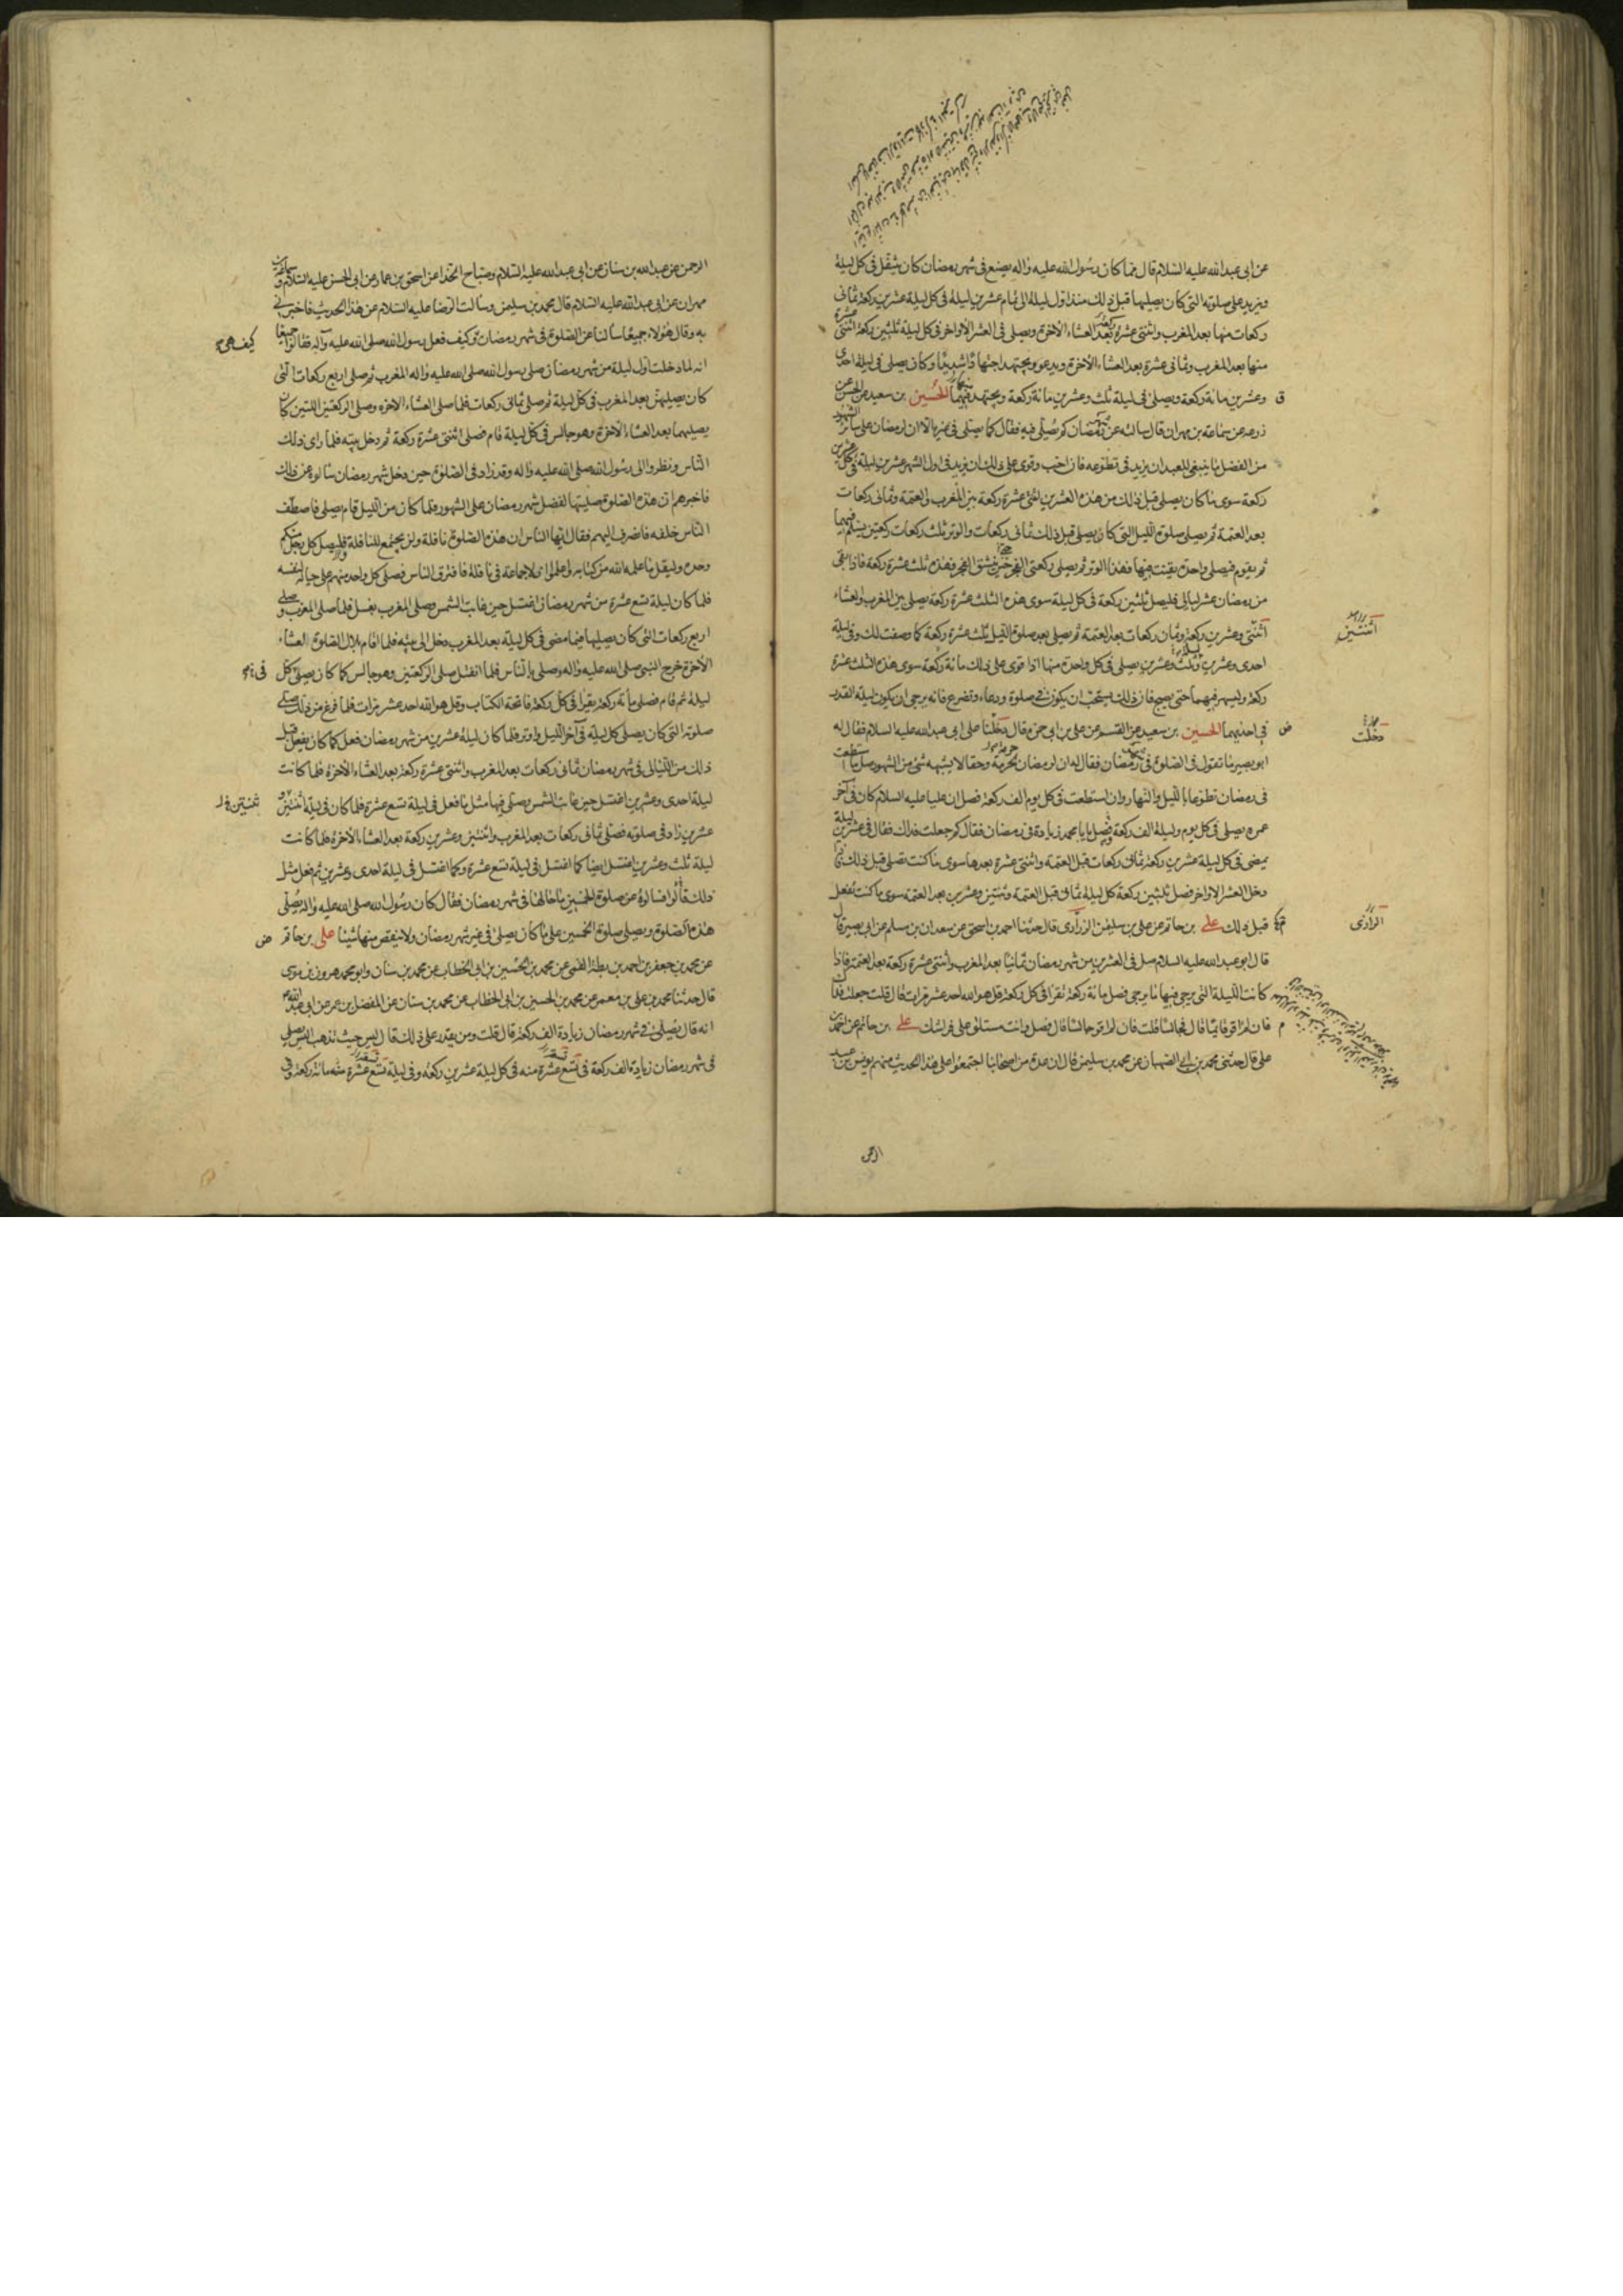 عن ابی عبدالله علیه السلام قال مما کان رسول الله علیه واله یصنع فی شهر رمضان کان یتنفل فی کل لیلة
ویزید علی صلوته التی کان یصلیها قبل ذلک منذ اول لیلة الی تمام عشرین لیلة فی کل لیلة عشرین رکعة ثمانی
رکعات منها بعد المغرب واثنتی عشرة بعد العشاء الآخرة ویصلی فی العشر الاواخر فی کل لیلة ثلثین رکعة اثنتی عشرة
منها بعد المغرب وثمانی عشرة بعد العشاء الآخرة ویدعو ویجتهد اجتهادا شدیدا وکان یصلی فی لیلة احدی
وعشرین مائة رکعة ویصلی فی لیلة ثلث وعشرین مائة رکعة ویجتهد فیهما الحسین بن سعید عن الحسن عن
زرعة عن سماعة بن مهران قال سالته عن رمضان کم یصلی فیه فقال کما یصلی فی غیره الا ان لرمضان علی سائر الشهور
من الفضل ما ینبغی للعبد ان یزید فی تطوعه فان احب وقوی علی ذلک ان یزید فی اول الشهر عشرین لیلة فی کل لیلة عشرین
رکعة سوی ما کان یصلی قبل ذلک من هذه العشرین اثنتی عشرة رکعة بین المغرب والعتمة وثمانی رکعات
بعد العتمة ثم یصلی صلوة اللیل التی کان یصلی قبل ذلک ثمانی رکعات والوتر ثلث رکعات رکعتین یسلم فیهما
ثم یقوم فیصلی واحدة یقنت فیها فهذا الوتر ثم یصلی رکعتی الفجر حین ینشق الفجر فهذه ثلث عشرة رکعة فاذا بقی
من رمضان عشر لیال فلیصل ثلثین رکعة فی کل لیلة سوی هذه الثلث عشرة رکعة یصلی بین المغرب والعشاء
اثنتی وعشرین رکعة وثمان رکعات بعد العتمة ثم یصلی بعد صلوة اللیل ثلث عشرة رکعة کما وصفت لک وفی لیلة
احدی وعشرین وثلث وعشرین یصلی فی کل واحدة منها اذا قوی علی ذلک مائة رکعة سوی هذه الثلث عشرة
رکعة ولیسهر فیهما حتی یصبح فان ذلک یستحب ان یکون فی صلوة ودعاء وتضرع فانه یرجی ان یکون لیلة القدر
فی احدیهما الحسین بن سعید عن القسم عن علی بن ابی حمزة قال دخلنا علی ابی عبدالله علیه السلام فقال له
ابو بصیر ما تقول فی الصلوة فی رمضان فقال له ان لرمضان لحرمة وحقا لا یشبهه شئ من الشهور صل ما استطعت
فی رمضان تطوعا باللیل والنهار وان استطعت فی کل یوم الف رکعة فصل ان علیا علیه السلام کان فی آخر
عمره یصلی فی کل یوم ولیلة الف رکعة فصل یا با محمد زیادة فی رمضان فقال کم جعلت فداک فقال فی عشرین لیلة
یمضی فی کل لیلة عشرین رکعة ثمانی رکعات قبل العتمة واثنتی عشرة بعدها سوی ما کنت تصلی قبل ذلک فاذا
دخل العشر الاواخر فصل ثلثین رکعة کل لیلة ثمانی قبل العتمة وثنتین وعشرین بعد العتمة سوی ما کنت تفعل
قبل ذلک علی بن حاتم عن علی بن سلیمن الزراری قال حدثنا احمد بن اسحق عن سعدان بن مسلم عن ابی بصیر قال
قال ابو عبدالله علیه السلام صل فی العشرین من شهر رمضان ثمانیا بعد المغرب واثنتی عشرة رکعة بعد العتمة فاذا
کانت اللیلة التی یرجی فیها ما یرجی فصل مائة رکعة تقرا فی کل رکعة قل هو الله احد عشر مرات قال قلت جعلت فداک
فان لم اقو قائما قال فجالسا قلت فان لم اقو جالسا قال فصل وانت مستلق علی فراشک علی بن حاتم عن احمد بن
علی قال حدثنی محمد بن ابی الصهبان عن محمد بن سلیمن قال ان عدة من اصحابنا اجتمعوا علی هذا الحدیث منهم یونس بن عبد
اثنتین
دخلت
الرازی
الرحمن
الرحمن عن عبدالله بن سنان عن ابی عبدالله علیه السلام وصباح الحذاء عن اسحق بن عمار عن ابی الحسن علیه السلام وسماعة بن
مهران عن ابی عبدالله علیه السلام قال محمد بن سلیمن وسالت الرضا علیه السلام عن هذا الحدیث فاخبرنی
به وقال هؤلاء جمیعا سالنا عن الصلوة فی شهر رمضان کیف فعل رسول الله صلی الله علیه وآله فقالوا جمیعا
انه لما دخلت اول لیلة من شهر رمضان صلی رسول الله صلی الله علیه واله المغرب ثم صلی اربع رکعات التی
کان یصلیهن بعد المغرب فی کل لیلة ثم صلی ثمانی رکعات فلما صلی العشاء الآخرة وصلی الرکعتین اللتین کان
یصلیهما بعد العشاء الآخرة وهو جالس فی کل لیلة قام فصلی اثنتی عشرة رکعة ثم دخل بیته فلما رای ذلک
الناس ونظروا الی رسول الله صلی الله علیه واله وقد زاد فی الصلوة حین دخل شهر رمضان سالوه عن ذلک
فاخبرهم ان هذه الصلوة صلیتها لفضل شهر رمضان علی الشهور فلما کان من اللیل قام یصلی فاصطف
الناس خلفه فانصرف الیهم فقال ایها الناس ان هذه الصلوة نافلة ولن یجتمع للنافلة فلیصل کل رجل منکم
وحده ولیقل ما علمه الله من کتابه واعلموا ان لا جماعة فی نافلة فافترق الناس فصلی کل واحد منهم علی حیاله لنفسه
فلما کان لیلة تسع عشرة من شهر رمضان اغتسل حین غابت الشمس وصلی المغرب بغسل فلما صلی المغرب وصلی
اربع رکعات التی کان یصلیها فیما مضی فی کل لیلة بعد المغرب دخل الی بیته فلما اقام بلال الصلوة العشاء
الآخرة خرج النبی صلی الله علیه واله وصلی بالناس فلما انفتل صلی الرکعتین وهو جالس کما کان یصلی کل
لیلة ثم قام فصلی مائة رکعة یقرا فی کل رکعة فاتحة الکتاب وقل هو الله احد عشر مرات فلما فرغ من ذلک صلی
صلوته التی کان یصلی کل لیلة فی آخر اللیل واوتر فلما کان لیلة عشرین من شهر رمضان فعل کما کان یفعل قبل
ذلک من اللیالی فی شهر رمضان ثمانی رکعات بعد المغرب واثنتی عشرة رکعة بعد العشاء الآخرة فلما کانت
لیلة احدی وعشرین اغتسل حین غابت الشمس وصلی فیها مثل ما فعل فی لیلة تسع عشرة فلما کان فی لیلة اثنتین و
عشرین زاد فی صلوته فصلی ثمانی رکعات بعد المغرب واثنتین وعشرین رکعة بعد العشاء الآخرة فلما کانت
لیلة ثلث وعشرین اغتسل ایضا کما اغتسل فی لیلة تسع عشرة وکما اغتسل فی لیلة احدی وعشرین ثم فعل مثل
ذلک قالوا فسالوه عن صلوة الخمسین ما حالها فی شهر رمضان فقال کان رسول الله صلی الله علیه واله یصلی
هذه الصلوة ویصلی صلوة الخمسین علی ما کان یصلی فی غیر شهر رمضان ولا ینقص منها شیئا علی بن حاتم
عن محمد بن جعفر بن احمد بن بطة القمی عن محمد بن الحسین بن ابی الخطاب عن محمد بن سنان وابو محمد هرون بن موسی
قال حدثنا محمد بن علی بن معمر عن محمد بن الحسین بن ابی الخطاب عن محمد بن سنان عن المفضل بن عمر عن ابی عبدالله
انه قال یصلی فی شهر رمضان زیادة الف رکعة قال قلت ومن یقدر علی ذلک قال لیس حیث تذهب الیس یصلی
فی شهر رمضان زیادة الف رکعة فی تسع عشرة منه فی کل لیلة عشرین رکعة وفی لیلة تسع عشرة منه مائة رکعة وفی
کیف هی